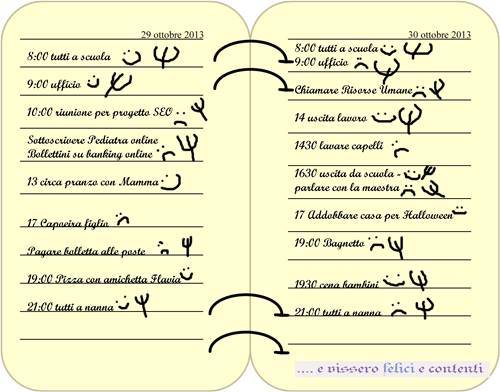 29 ottobre 2013
8:00 tutti a scuola
9:00 ufficio
10:00 riunione per progetto SEO
Sottoscrivere Pediatra online
Bollettini su banking online
13 circa pranzo con Mamma
17 Capoeira figlio
Pagare bolletta alle poste
19:00 Pizza con amichetta Flavia
21:00 tutti a nanna
30 ottobre 2013
8:00 tutti a scuola
9:00 ufficio
Chiamare Risorse Umane
14 uscita lavoro
1430 lavare capelli
1630 uscita da scuola -
parlare con la maestra
17 Addobbare casa per Halloween
19:00 Bagnetto
1930 cena bambini
21:00 tutti a nanna
.... e vissero felici e contenti